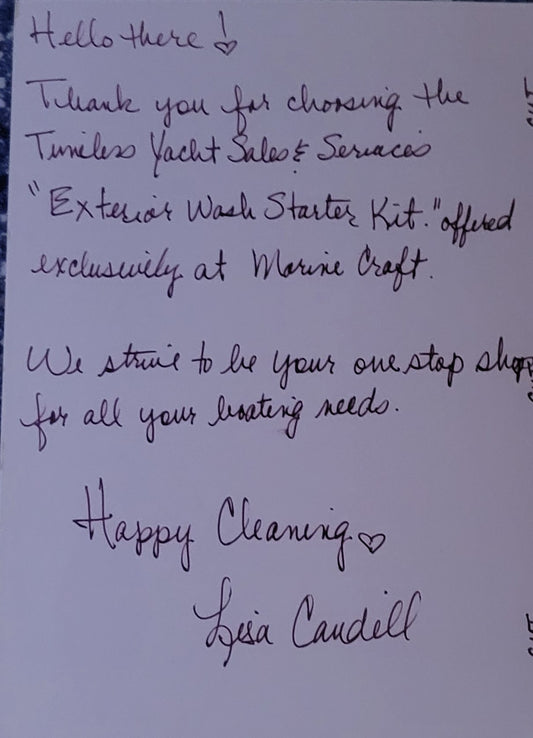 Hello there!
Thank you for choosing the
Timeless Yacht Sales & Services
"Exterior Wash Starter Kit." offered
exclusively at Marine Craft.
We strive to be your one stop shop
for all your boating needs.
Happy Cleaning ♡
Lisa Caudill